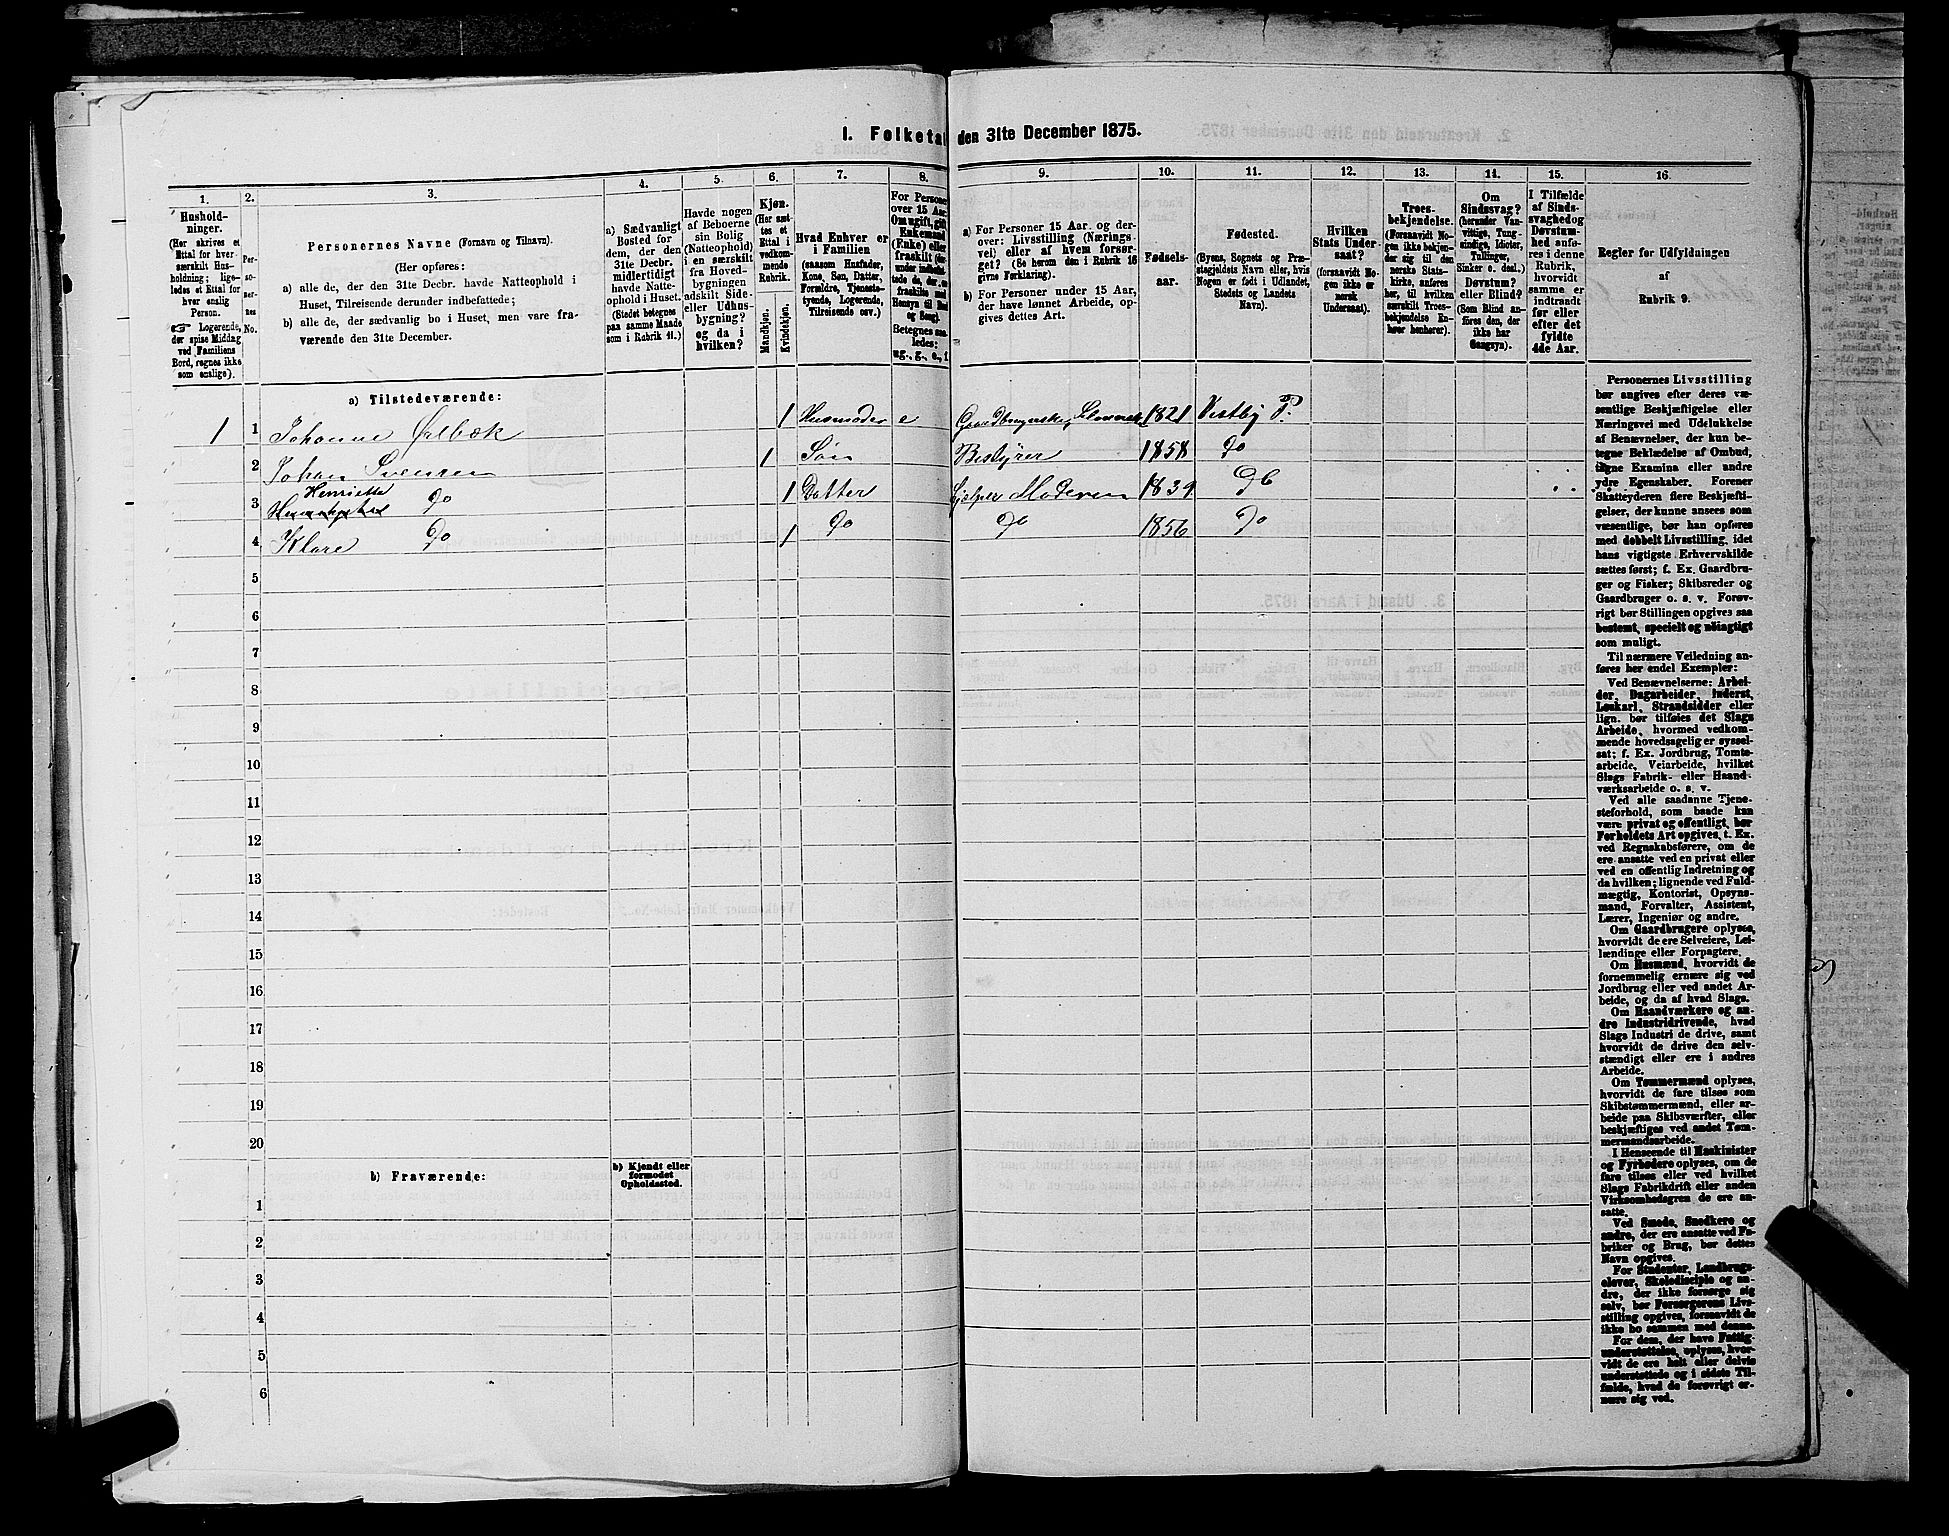 I. Folketal den 31te December 1875.
1. 2. 3. 4. 5. 6. 7. 8. 9. 10. 11. 12. 13. 14. 15. 16.
Hushold-
ninger.
(Her skrives et
Ettal for hver
særskilt Hus-
holdning; lige-
ledes et Ettal for
hver enslig
Person.
☞ Logerende,
der spise Middag
ved Familiens
Bord, regnes ikke
som enslige).
Per-
so-
ner-
nes
No.
Personernes Navne (Fornavn og Tilnavn).
(Her opføres:
a) alle de, der den 31te Decbr. havde Natteophold i
Huset, Tilreisende derunder indbefattede;
b) alle de, der sædvanlig bo i Huset, men vare fra-
værende den 31te December.
a) Sædvanligt
Bosted for
dem, der den
31te Decbr.
midlertidigt
havde Natte-
ophold i Huset.
(Stedet betegnes
paa samme Maade
som i Rubrik 11.)
Havde nogen
af Beboerne
sin Bolig
(Natteophold)
i en særskilt
fra Hoved-
bygningen
adskilt Side-
eller Udhus-
bygning?
og da i
hvilken?
Kjøn.
(Her sæt-
tes et
Ettal i
vedkom-
mende
Rubrik.
Mandkjøn.
Kvindekjøn.
Hvad Enhver er
i Familien
(saasom Husfader,
Kone, Søn, Datter,
Forældre, Tjeneste-
tyende, Logerende,
Tilreisende osv.)
For Personer
over 15 Aar:
Om ugift, gift
Enkemand
(Enke) eller
fraskilt
Betegnes saa-
ledes:
ug., g., e., f.
a) For Personer 15 Aar. og der-
over: Livsstilling (Nærings-
vei) eller af hvem forsør-
get? (Se herom den i Rubrik 16
givne Forklaring).
b) For Personer under 15 Aar,
der have lønnet Arbeide, op-
gives dettes Art.
Fødsels-
aar.
Fødested.
(Byens, Sognets og Præ-
stegjeldets Navn eller, hvis
Nogen er født i Udlandet,
Stedets og Landets
Navn).
Hvilken
Stats Under-
saat?
(forsaavidt No-
gen ikke er
norsk
Undersaat).
Troes-
bekjendelse.
(Forsaavidt No-
gen ikke bekjen-
der sig til den
norske Stats-
kirke, anføres
her, til hvilken
særskilt Troes-
bekjendelse En-
hver henhører).
Om
Sindssvag?
(herunder Van-
vittige, Tung-
sindige, Idioter,
Tullinger,
Sinker o. desl.)
Døvstum?
eller Blind?
(Som Blind an-
føres den, der
ikke har
Gangsyn).
I Tilfælde
af Sinds-
svaghed og
Døvstum-
hed anfø-
res i denne
Rubrik,
hvorvidt
samme er
indtraadt
før eller
efter det
fyldte
4de Aar.
Regler for Udfyldningen
af
Rubrik 9.
a) Tilstedeværende:
1 1 Johanne Ørebæk 1 Husmoder e Gaardbrugerske, 1821 Vestby P.
2 Johan Svensen 1 Søn Bestyrer 1858 Do
3 Henriette Do 1 Datter hjelper Moderen 1839 Do
4 Klare Do 1 Do Do 1856 Do
5
6
7
8
9
10
11
12
13
14
15
16
17
18
19
20
b) Fraværende:
b) Kjendt eller
formodet
Opholdssted.
1
2
3
4
5
6
Personernes Livsstilling
bør angives efter deres væ-
sentlige Beskjæftigelse eller
Næringsvei med Udelukkelse
af Benævnelser, der kun be-
tegne Beklædelse af Ombud,
tagne Examina eller andre
ydre Egenskaber. Forener
Skatteyderen flere Beskjæfti-
gelser, der kunne ansees som
væsentlige, bør han opføres
med dobbelt Livsstilling, idet
hans vigtigste Erhvervskilde
sættes først; f. Ex. Gaardbru-
ger og Fisker; Skibsreder og
Gaardbruger o. s. v. Forøv-
rigt bør Stillingen opgives saa
bestemt, specielt og nöiagtigt
som muligt.
Til nærmere Veiledning an-
føres her endel Exempler:
Ved Benævnelserne: Arbei-
der, Dagarbeider, Inderst,
Løskarl, Strandsidder eller
lign. bør tilføies det Slags
Arbeide, hvormed vedkom-
mende hovedsagelig er syssel-
sat; f. Ex. Jordbrug, Tomte-
arbeide, Veiarbeide, hvilket
Slags Fabrik- eller Haand-
værksarbeide o. s. v.
Ved alle saadanne Tjene-
steforhold, som baade kan
være privat og offentligt, bør
Forholdets Art opgives, t. Ex.
ved Regnskabsførere, om de
ere ansatte ved en privat eller
ved en offentlig Indretning og
da hvilken; lignende ved Fuld-
mægtig, Kontorist, Opsyns-
mand, Forvalter, Assistent,
Lærer, Ingeniør og andre.
Om Gaardbrugere oplyses,
hvorvidt de ere Selveiere, Lei-
lændinge eller Forpagtere.
Om Husmænd, hvorvidt de
fornemmelig ernære sig ved
Jordbrug eller ved andet Ar-
beide, og da af hvad Slags.
Om Haandværkere og an-
dre Industridrivende, hvad
Slags Industri de drive, samt
hvorvidt de drive den selv-
stændigt eller ere i andres
Arbeide.
Om Tømmermænd oplyses,
hvorvidt de fare tilsøs som
Skibstømmermænd, eller ar-
beide paa Skibsværfter, eller
beskjæftiges ved andet Tøm-
mermandsarbeide.
I Henseende til Maskinister
og Fyrbødere oplyses, om de
fare tilsøs eller ved hvilket
Slags Fabrikdrift eller anden
Virksomhedsgren de ere an-
satte.
Ved Smede, Snedkere og
andre, der ere ansatte ved Fa-
briker og Brug, bør dettes
Navn opgives.
For Studenter, Landbrugs-
elever, Skoledisciple og an-
dre, der ikke forsørge sig
selv, bør Forsørgerens Livs-
stilling opgives, forsaavidt de
ikke bo sammen med denne.
For dem, der have Fattig-
understøttelse, oplyses, hvor-
vidt de ere helt eller delvis
understøttede og i sidste Til-
fælde, hvad de forøvrigt er-
nære sig ved.